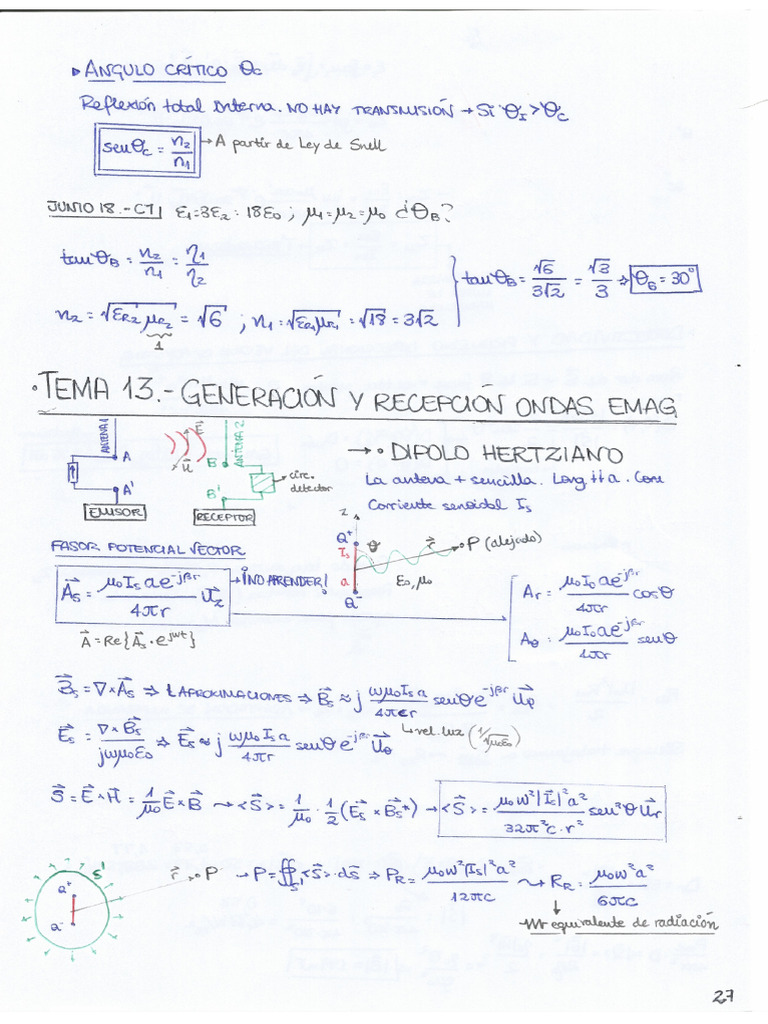 ▸ ANGULO CRÍTICO θc
Reflexión total interna. NO HAY TRANSMISIÓN → Si θI > θc
senθc = n2/n1 → A partir de Ley de Snell
JUNIO 18.-C7| ε1=3ε2=18ε0 ; μ1=μ2=μ0 ¿θB?
tanθB = n2/n1 = η1/η2
n2 = √(εR2 μR2) = √6 ; n1 = √(εR1 μR1) = √18 = 3√2
1
tanθB = √6/3√2 = √3/3 ⇒ θB = 30°
• TEMA 13.- GENERACIÓN Y RECEPCIÓN ONDAS EMAG
ANTENA 1
A
A'
EMISOR
E⃗
H⃗
ANTENA 2
B
B'
RECEPTOR
circ. detector
→ • DIPOLO HERTZIANO
La antena + sencilla. Long ↑↑ a. Con
Corriente senoidal Is
z
Q+
Is
θ
r⃗
P (alejado)
a
ε0, μ0
Q-
FASOR POTENCIAL VECTOR
A⃗s = μ0 Is a e^-jβr / 4πr u⃗z → ¡NO APRENDER!
Ar = μ0 I0 a e^-jβr / 4πr cosθ
Aθ = μ0 I0 a e^-jβr / 4πr senθ
A⃗ = Re{A⃗s · e^jwt}
B⃗s = ∇ × A⃗s ⇒ APROXIMACIONES ⇒ B⃗s ≈ j wμ0 Is a / 4πcr senθ e^-jβr u⃗φ
E⃗s = ∇ × B⃗s / jwμ0ε0 ⇒ E⃗s ≈ j wμ0 Is a / 4πr senθ e^-jβr u⃗θ
↳ vel. luz (1/√μ0ε0)
S⃗ = E⃗ × H⃗ = 1/μ0 E⃗ × B⃗ ⤳ <S⃗> = 1/μ0 · 1/2 (E⃗s × B⃗s*) → <S⃗> = μ0 w² |I⃗s|² a² / 32π² c · r² sen²θ u⃗r
S'
Q+
Q-
r⃗
P → P = ∯S' <S⃗> · dS⃗ ⇒ PR = μ0 w² |Is|² a² / 12πc ⤳ RR = μ0 w² a² / 6πc
equivalente de radiación
27